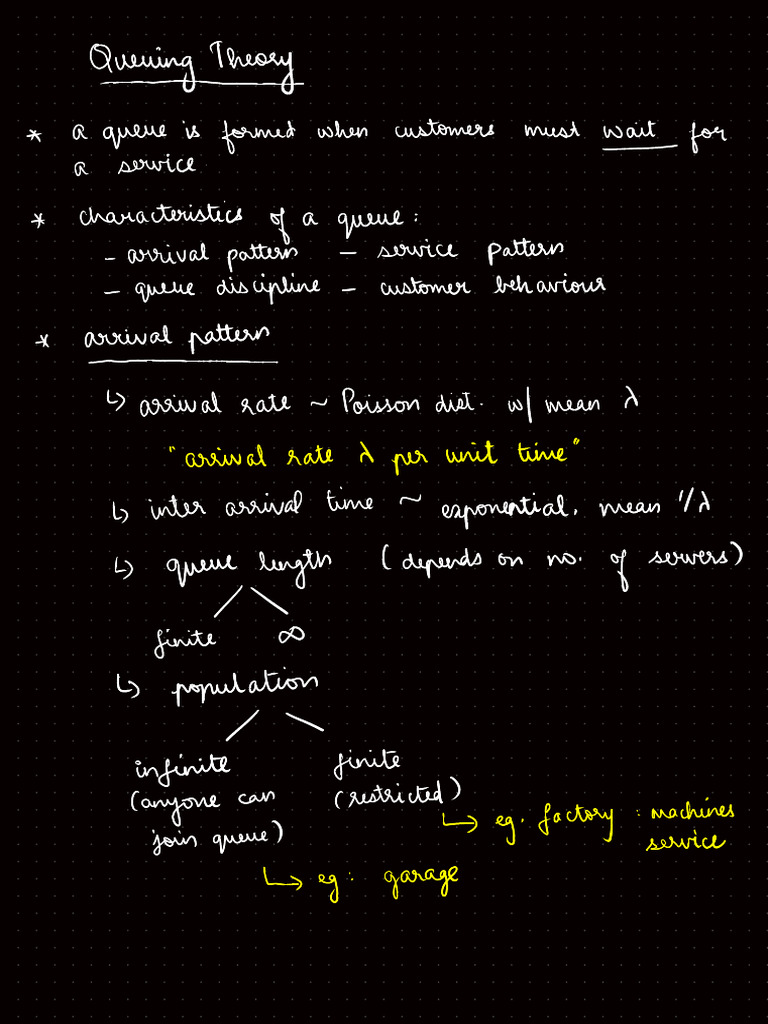 Queuing Theory
* a queue is formed when customers must wait for
a service
* characteristics of a queue:
- arrival pattern - service pattern
- queue discipline - customer behaviour
* arrival pattern
↳ arrival rate ~ Poisson dist. w/ mean λ
"arrival rate λ per unit time"
↳ inter arrival time ~ exponential, mean 1/λ
↳ queue length (depends on no. of servers)
finite ∞
↳ population
infinite finite
(anyone can (restricted)
join queue)
↳ eg. factory : machines
service
↳ eg: garage